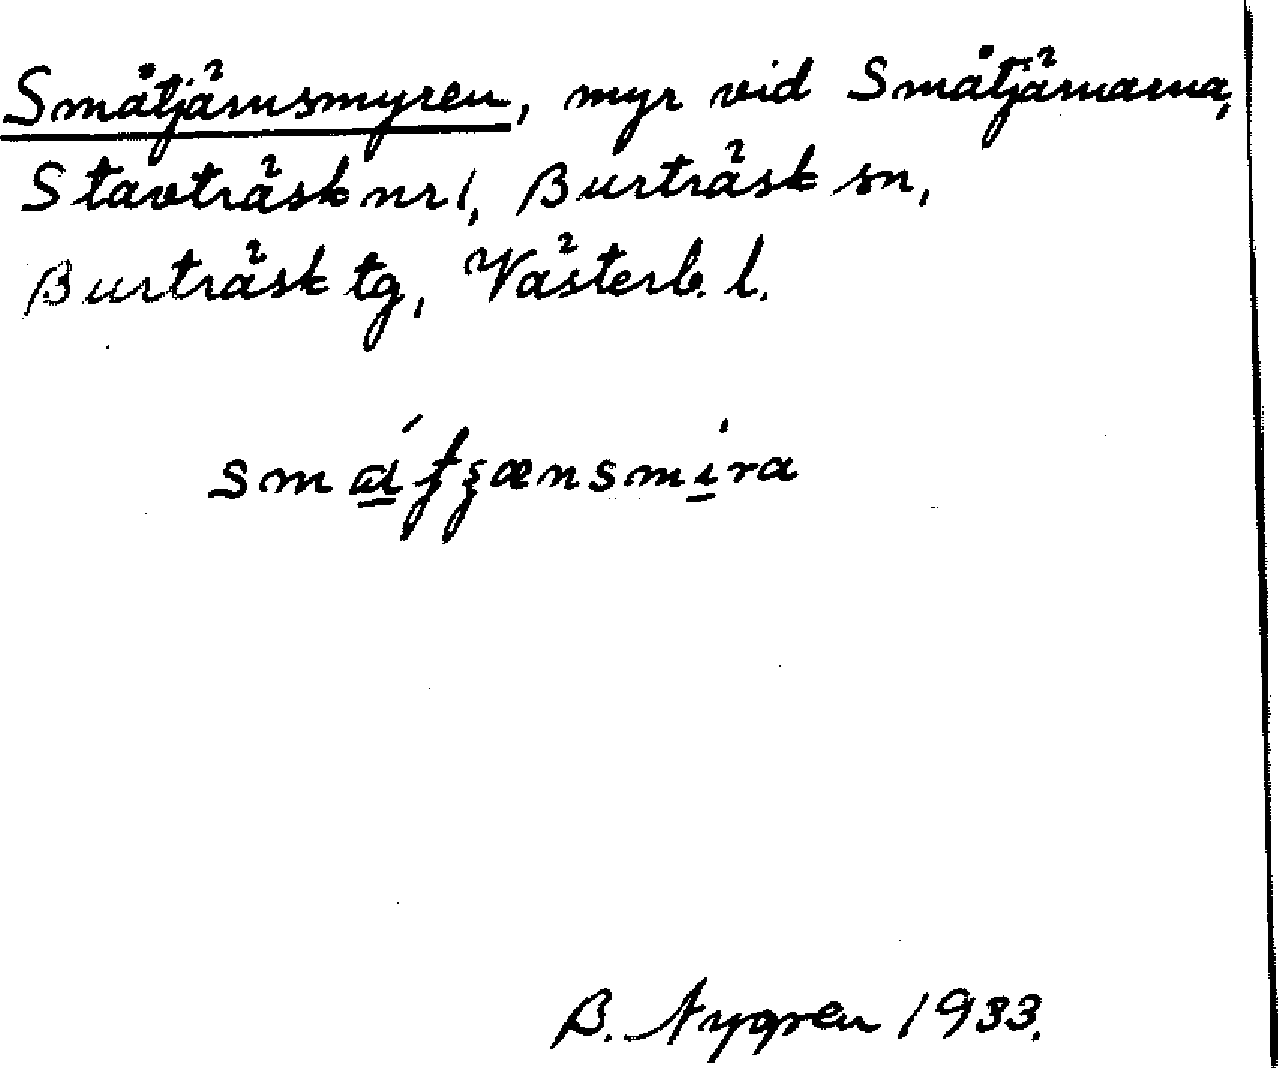 Småtjärnsmyren, myr vid Småtjärnarna,
Stavträsk nr 1, Burträsk sn,
Burträsk tg, Västerb. l.
B. Nygren 1933.